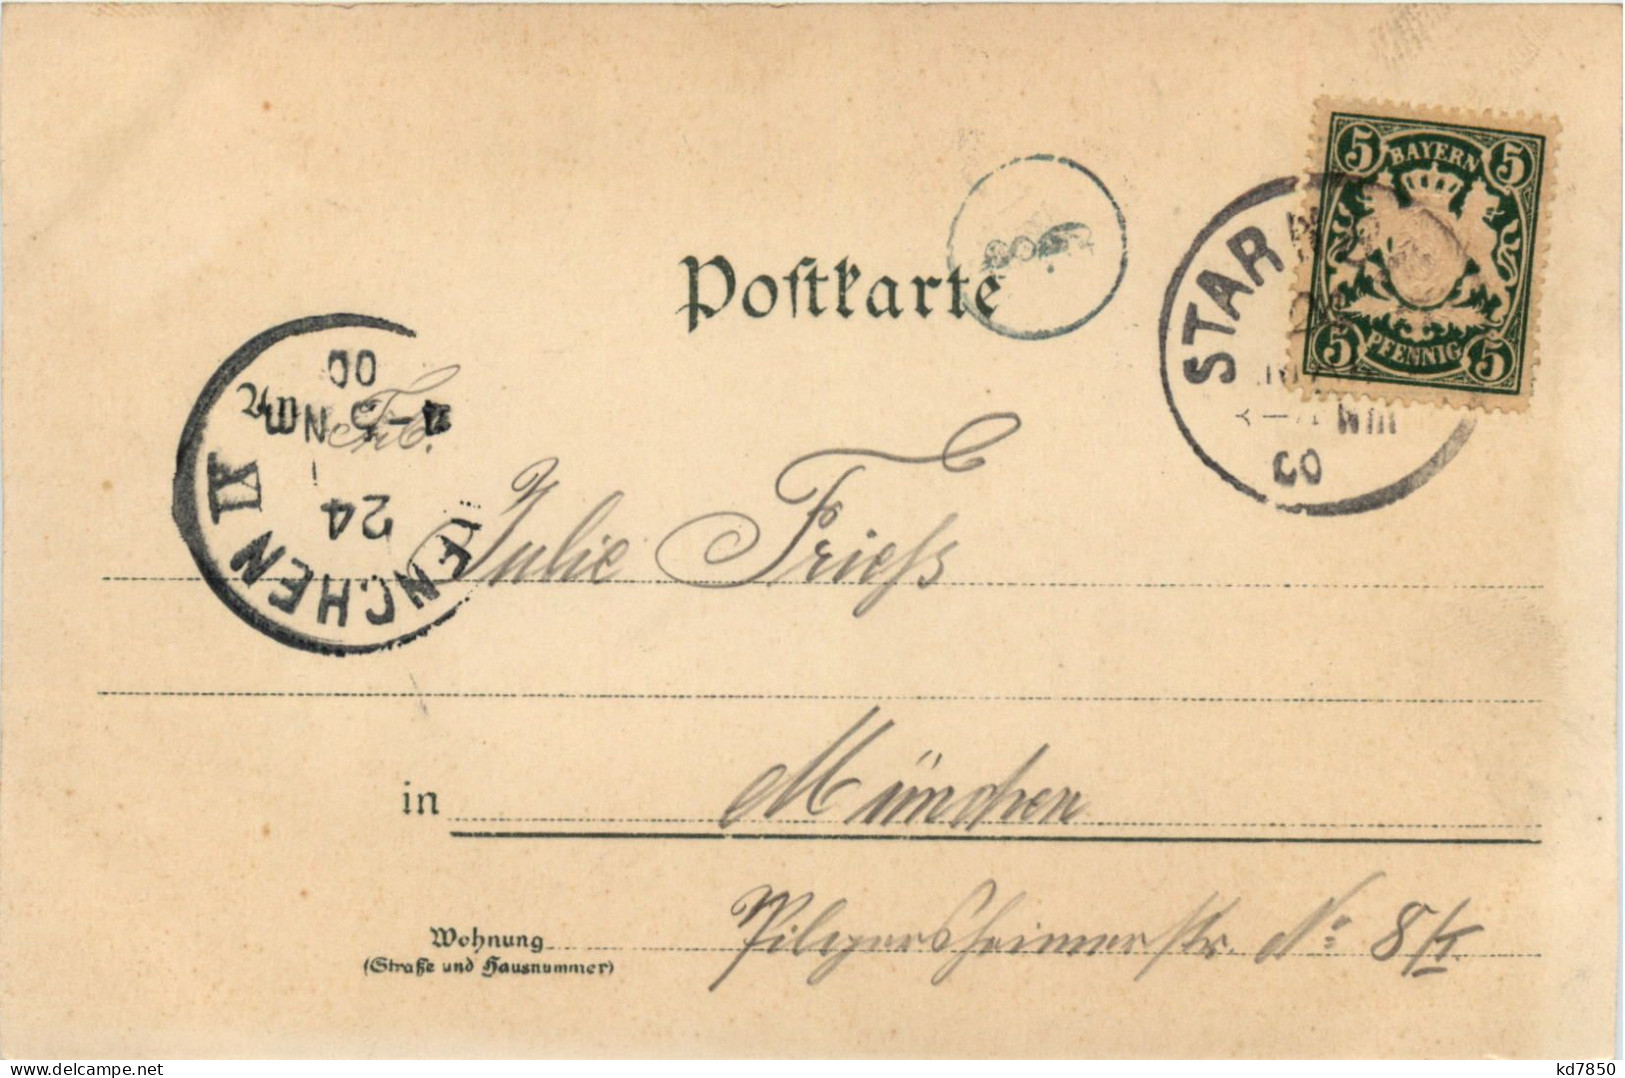 5 BAYERN 5
5 PFENNIG 5
STAR
3-4 Nm
00
Postkarte
An Frl.
00
4-5 Nm
24
ENCHEN IX
Julie Frieß
in München
Wohnung Pilgersheimerstr. No: 8/I
(Straße und Hausnummer)
kd7850